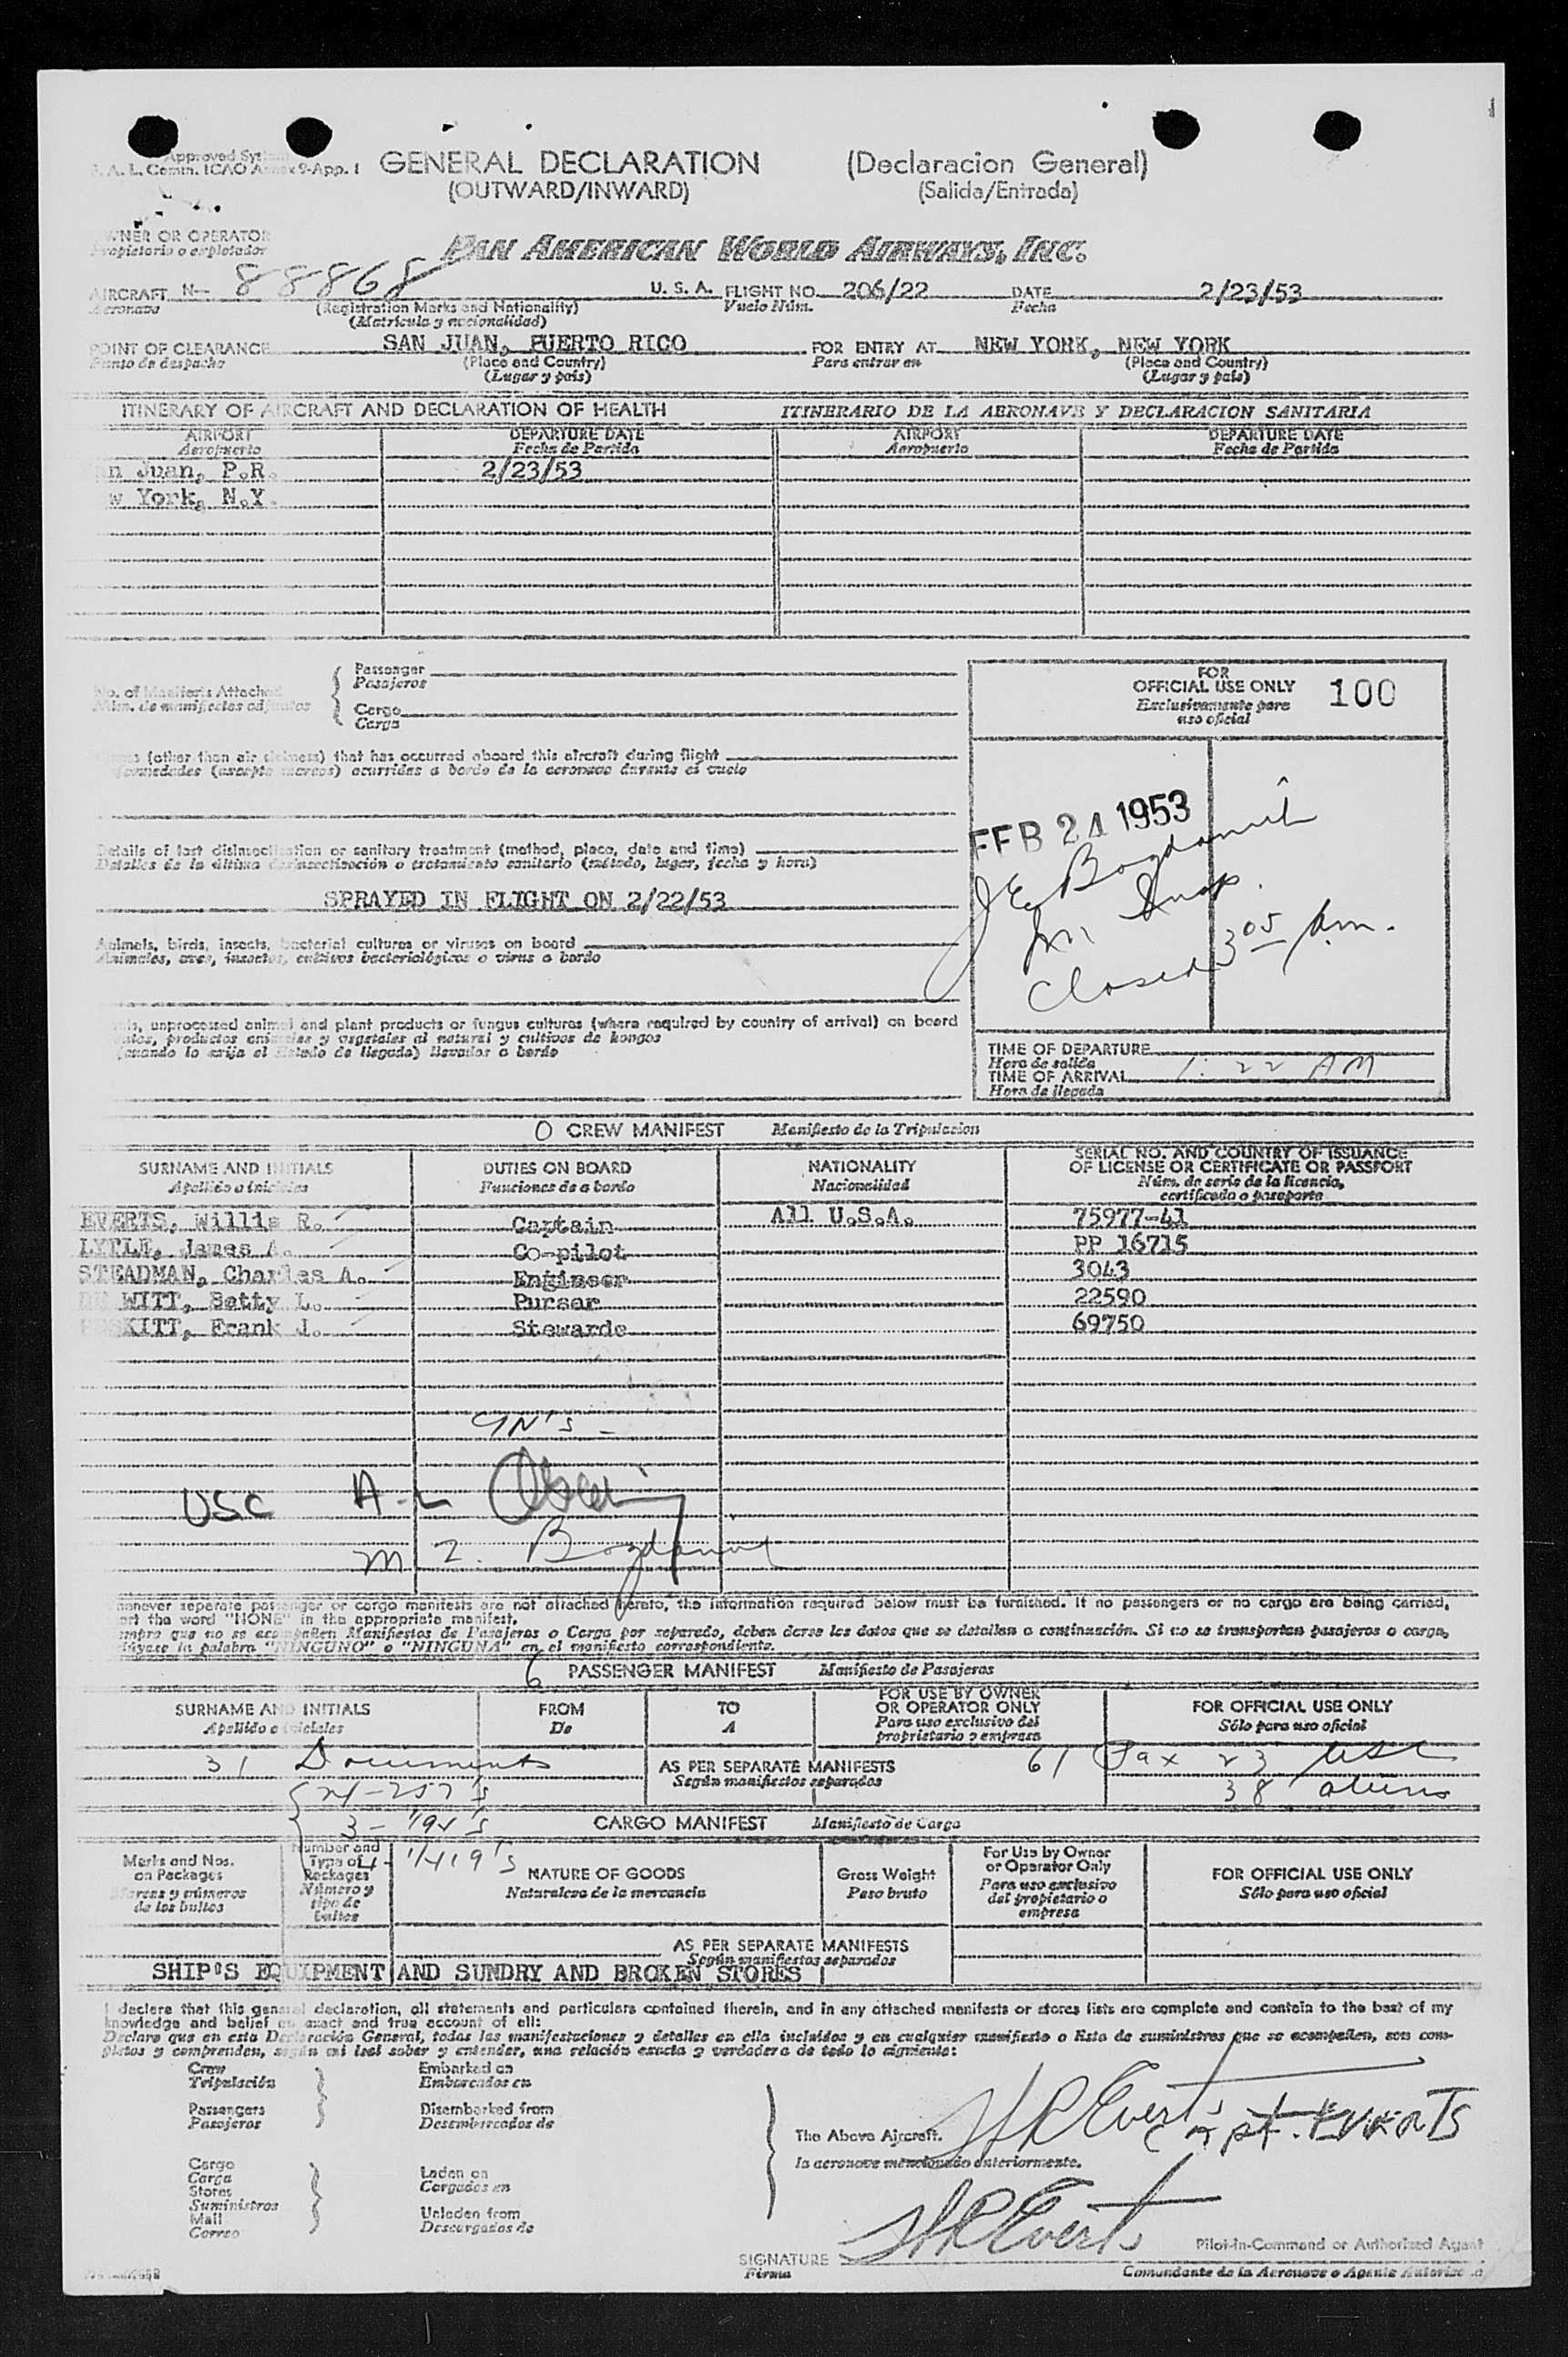 Approved Sys
A. L. Comm. ICAO Annex 9-App. I
GENERAL DECLARATION (Declaracion General)
(OUTWARD/INWARD) (Salida/Entrada)
WNER OR OPERATOR
ropietario o explotador
PAN AMERICAN WORLD AIRWAYS, INC.
AIRCRAFT N- 88868 U. S. A. FLIGHT NO. 206/22 DATE 2/23/53
Aeronave (Registration Marks and Nationality) Vuelo Núm. Fecha
(Matricula y nacionalidad)
POINT OF CLEARANCE SAN JUAN, PUERTO RICO FOR ENTRY AT NEW YORK, NEW YORK
Punto de despacho (Place and Country) Para entrar en (Place and Country)
(Lugar y país) (Lugar y país)
ITINERARY OF AIRCRAFT AND DECLARATION OF HEALTH ITINERARIO DE LA AERONAVE Y DECLARACION SANITARIA
AIRPORT DEPARTURE DATE AIRPORT DEPARTURE DATE
Aeropuerto Fecha de Partida Aeropuerto Fecha de Partida
n Juan, P.R. 2/23/53
w York, N.Y.
Passenger
Pasajeros
No. of Manifests Attached
Núm. de manifiestos adjuntos
Cargo
Carga
FOR
OFFICIAL USE ONLY 100
Exclusivamente para
uso oficial
(other than air sickness) that has occurred aboard this aircraft during flight
(excepto mareos) ocurridas a bordo de la aeronave durante el vuelo
FEB 24 1953
J E Bogdanul
Insp.
Closed 3 05 p.m.
Details of last disinsectisation or sanitary treatment (method, place, date and time)
Detalles de la última desinsectisación o tratamiento sanitario (método, lugar, fecha y hora)
SPRAYED IN FLIGHT ON 2/22/53
Animals, birds, insects, bacterial cultures or viruses on board
Animales, aves, insectos, cultivos bacteriológicos o virus a bordo
unprocessed animal and plant products or fungus cultures (where required by country of arrival) on board
productos animales y vegetales al natural y cultivos de hongos
(cuando lo exija el Estado de llegada) llevados a bordo
TIME OF DEPARTURE
Hora de salida
TIME OF ARRIVAL 1:22 AM
Hora de llegada
O CREW MANIFEST Manifiesto de la Tripulacion
SURNAME AND INITIALS DUTIES ON BOARD NATIONALITY SERIAL NO. AND COUNTRY OF ISSUANCE
OF LICENSE OR CERTIFICATE OR PASSPORT
Apellido o iniciales Funciones de a bordo Nacionalidad Núm. de serie de la licencia,
certificado o pasaporte
EVERTS, Willis R. Captain All U.S.A. 75977-41
LYTLE, James A. Co-pilot PP 16715
STEADMAN, Charles A. Engineer 3043
DE WITT, Betty L. Purser 22590
SKITT, Frank J. Stewards 69750
IN'S -
USC A-L
M 2. Bogdanul
henever separate passenger or cargo manifests are not attached hereto, the information required below must be furnished. If no passengers or no cargo are being carried,
ert the word "NONE" in the appropriate manifest.
empre que no se acompañen Manifiestos de Pasajeros o Carga por separado, deben darse los datos que se detallan a continuación. Si no se transportan pasajeros o carga,
clúyase la palabra "NINGUNO" o "NINGUNA" en el manifiesto correspondiente.
6 PASSENGER MANIFEST Manifiesto de Pasajeros
SURNAME AND INITIALS FROM TO FOR USE BY OWNER
OR OPERATOR ONLY FOR OFFICIAL USE ONLY
Apellido o iniciales De A Para uso exclusivo del
propietario o empresa Sólo para uso oficial
31 Documents AS PER SEPARATE MANIFESTS 61 Pax 23 USC
Según manifiestos separados 38 aliens
24-257's
3-
CARGO MANIFEST Manifiesto de Carga
4- I/419's
Marks and Nos.
on Packages
Marcas y números
de los bultos
Number and
Type of
Packages
Número y
tipo de
bultos
NATURE OF GOODS
Naturaleza de la mercancía
Gross Weight
Peso bruto
For Use by Owner
or Operator Only
Para uso exclusivo
del propietario o
empresa
FOR OFFICIAL USE ONLY
Sólo para uso oficial
AS PER SEPARATE MANIFESTS
Según manifiestos separados
SHIP'S EQUIPMENT AND SUNDRY AND BROKEN STORES
I declare that this general declaration, all statements and particulars contained therein, and in any attached manifests or stores lists are complete and contain to the best of my
knowledge and belief an exact and true account of all:
Declaro que en esta Declaración General, todas las manifestaciones y detalles en ella incluidos y en cualquier manifiesto o lista de suministros que se acompañen, son com-
pletos y comprenden, según mi leal saber y entender, una relación exacta y verdadera de todo lo siguiente:
Crew Embarked on
Tripulación Embarcados en
Passengers Disembarked from
Pasajeros Desembarcados de
The Above Aircraft.
la aeronave mencionada anteriormente.
W R Everts Capt. EVERTS
Cargo
Carga
Laden on
Cargados en
Stores
Suministros
Mail
Correo
Unladen from
Descargados de
W R Everts
SIGNATURE Pilot-in-Command or Authorized Agent
Firma Comandante de la Aeronave o Agente Autorizado